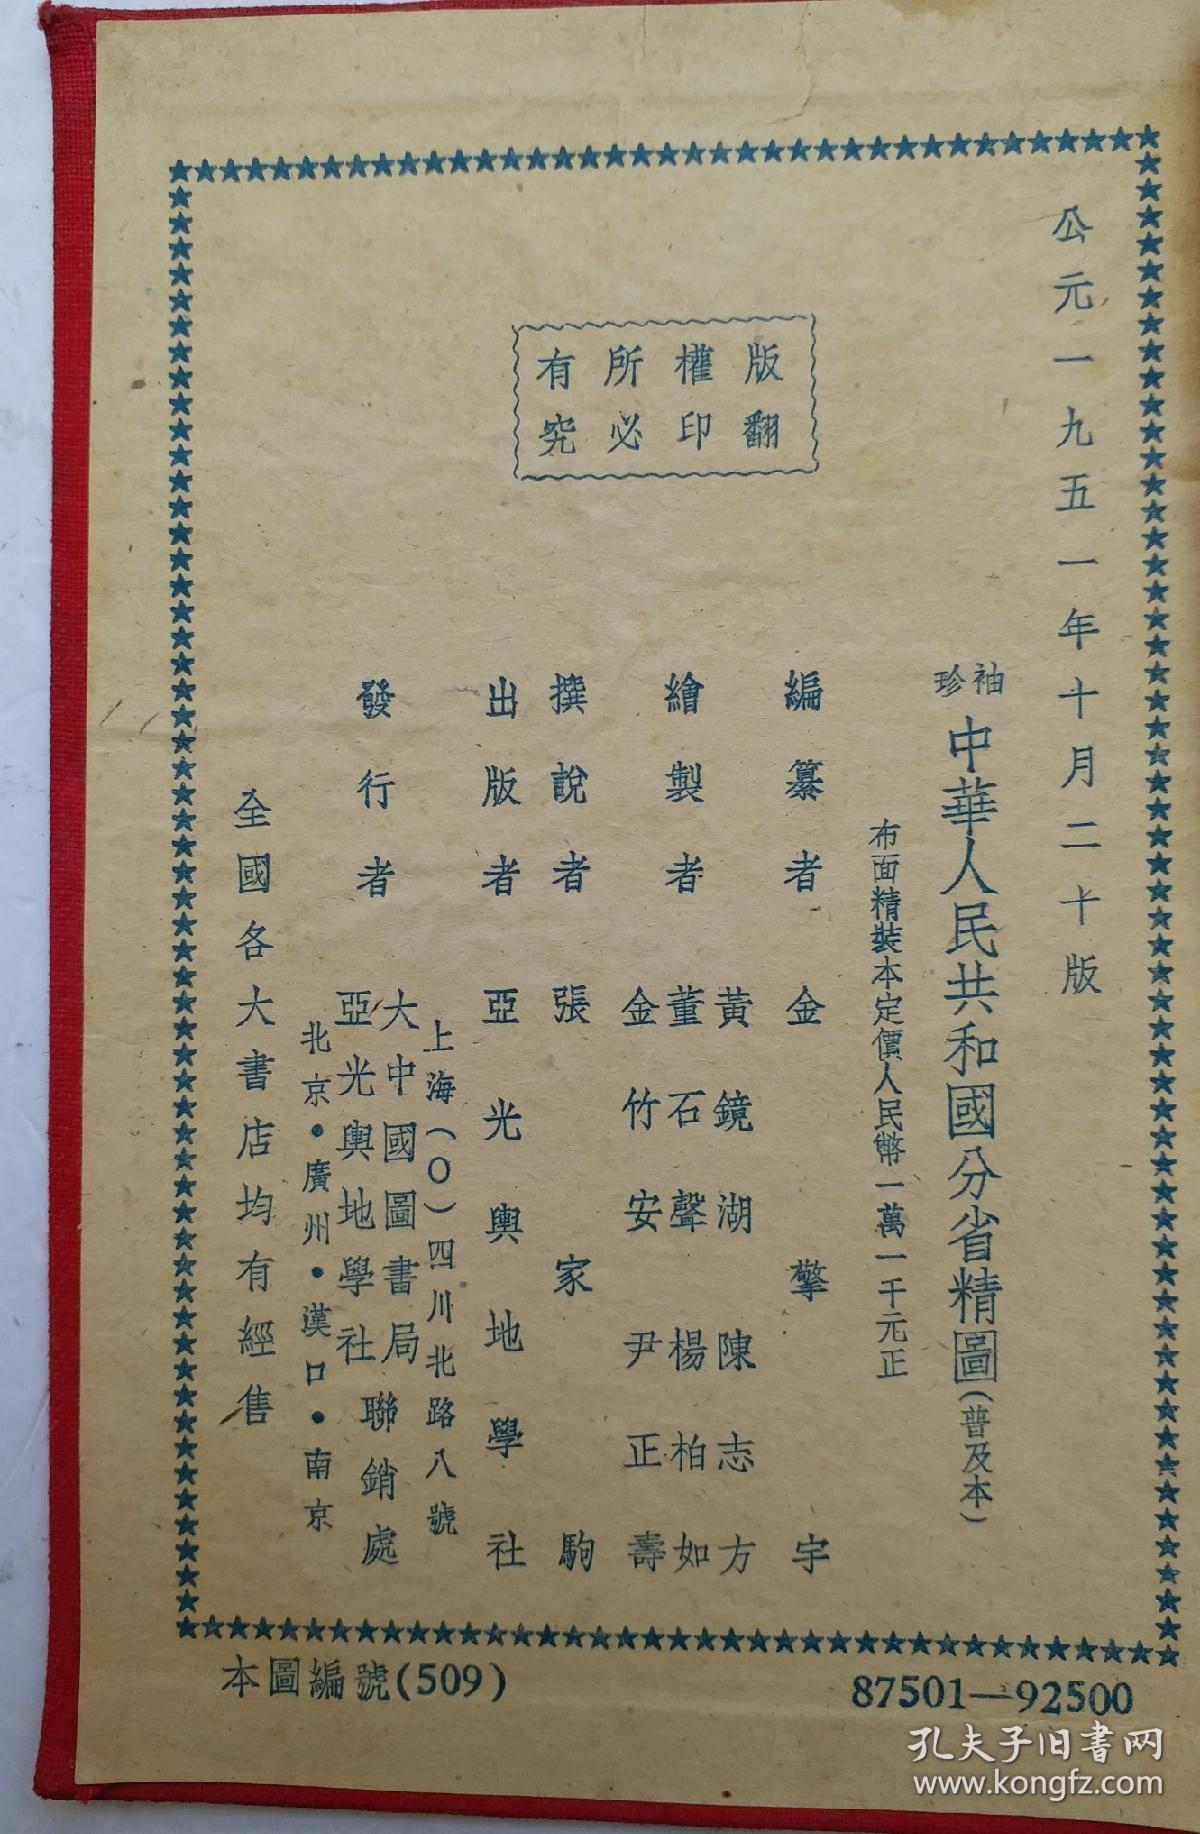 公元一九五一年十月二十版
袖珍
中華人民共和國分省精圖(普及本)
布面精裝本定價人民幣一萬一千元正
版權所有
翻印必究
編纂者 金擎宇
繪製者 黃鏡湖 陳志方
董石聲 楊柏如
金竹安 尹正壽
撰說者 張家駒
出版者 亞光輿地學社
上海(0)四川北路八號
發行者 大中國圖書局
亞光輿地學社
聯銷處
北京•廣州•漢口•南京
全國各大書店均有經售
本圖編號(509)
87501—92500
孔夫子旧书网
www.kongfz.com